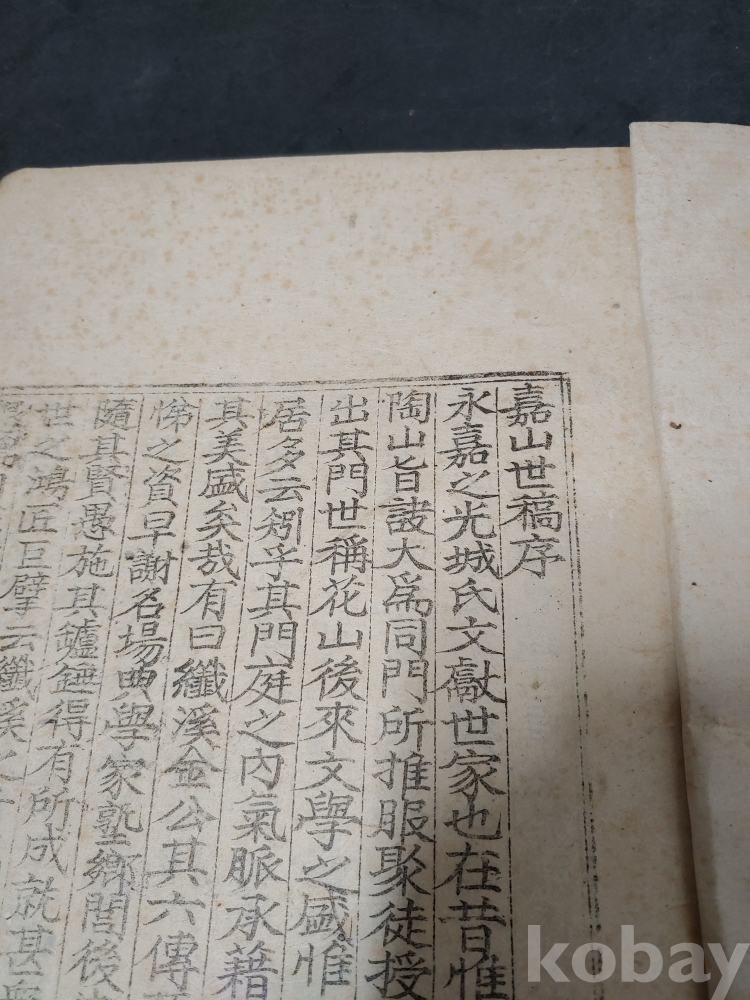 嘉山世稿序
永嘉之光城氏文獻世家也在昔惟
陶山旨訣大爲同門所推服聚徒授
出其門世稱花山後來文學之盛惟
居多云矧乎其門庭之內氣脈承藉
其美盛矣哉有曰纖溪金公其六傳
悌之資早謝名場典學家塾鄉閭後
隨其賢愚施其鑪錘得有所成就甚
世之鴻匠巨擘云纖溪
kobay